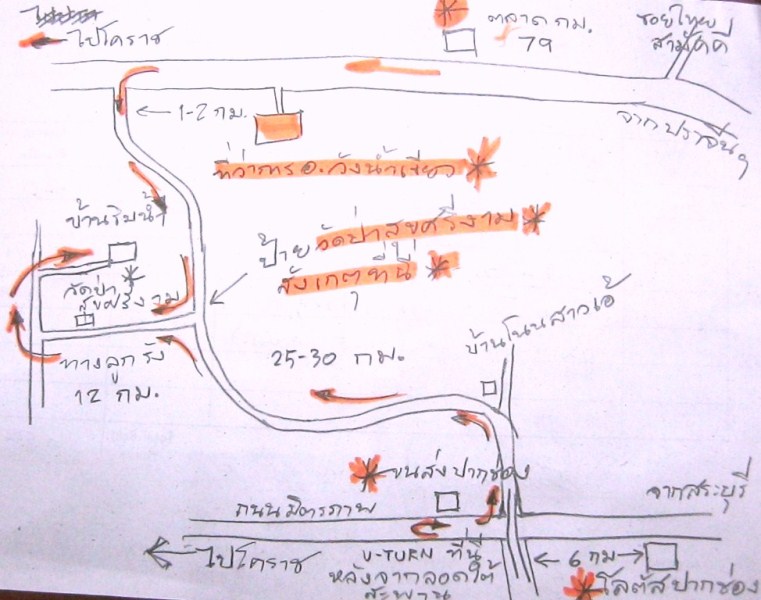 ไปโคราช
ตลาด กม.
79
ซอยไทย
สามัคคี
จากปราจีนฯ
1-2 กม.
ที่ว่าการ อ. วังน้ำเขียว
บ้านริมน้ำ
ป้าย วัดป่าสุขศรีงาม
สังเกตที่นี่
วัดป่า
สุขศรีงาม
ทางลูกรัง
12 กม.
25-30 กม.
บ้านโนนสาวเอ้
ขนส่งปากช่อง
จากสระบุรี
ถนนมิตรภาพ
ไปโคราช
U-TURN ที่นี่
หลังจากลอดใต้
สะพาน
6 กม
โลตัสปากช่อง